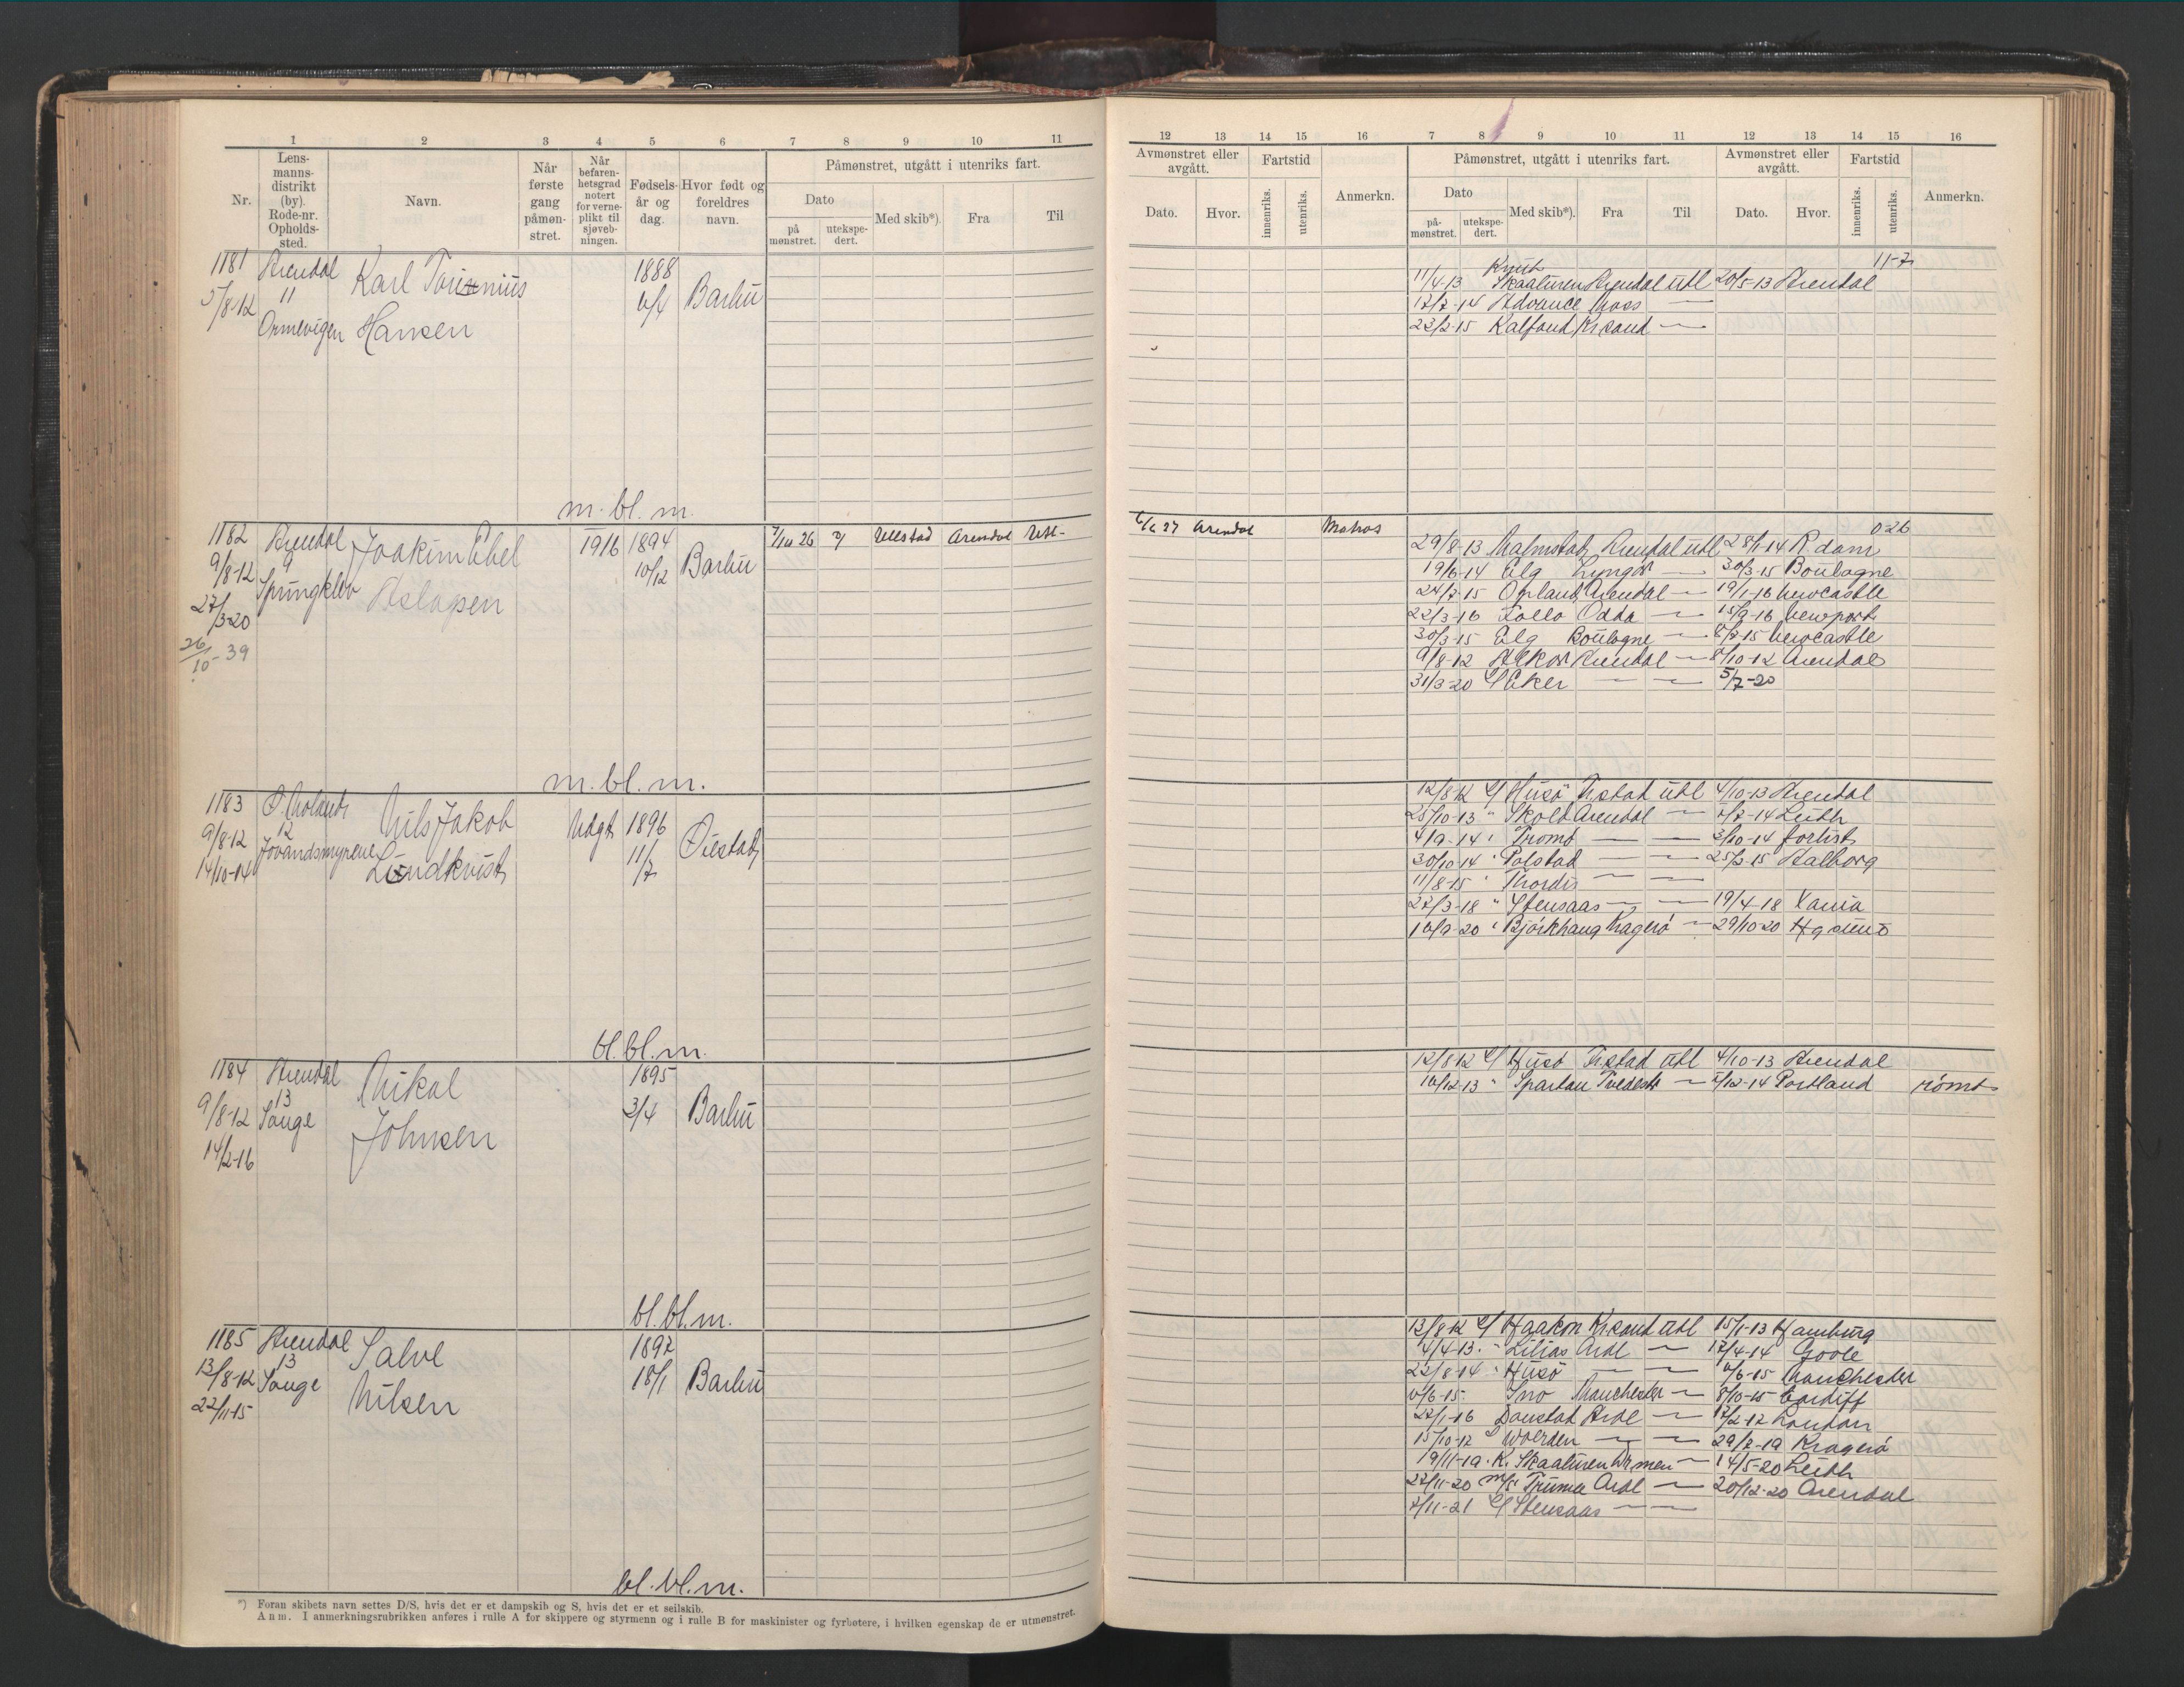 1 2 3 4 5 6 7 8 9 10 11
Nr.
Lens-
manns-
distrikt
(by).
Rode-nr.
Opholds-
sted.
Navn.
Når
første
gang
påmøn-
stret.
Når
befaren-
hetsgrad
notert
for verne-
plikt til
sjøveb-
ningen.
Fødsels-
år og
dag.
Hvor født og
foreldres
navn.
Påmønstret, utgått i utenriks fart.
Dato
på
mønstret.
utekspe-
dert.
Med skib*).
Fra
Til
1181 Arendal Karl 1888
5/8-12 11 6/4 Barbu
Ormevigen Hansen
m. bl. m.
1182 Arendal Joakim Abel 1916 1894 7/10 26 Ullstad Arendal Utl.
9/8-12 9 10/12 Barbu
Springklev Aslaksen
27/3-20
26/10-39
m. bl. m.
1183 Nils Jakob Udgt 1896
9/8-12 12 11/7 Öiestad
Jovandsmyrene Lindkvist
14/10-14
bl. bl. m.
1184 Arendal Nikal 1895
9/8-12 13 3/4 Barbu
Songe Johnsen
14/2-16
bl. bl. m.
1185 Arendal Salve 1897
13/8-12 13 18/1 Barbu
Songe Nilsen
22/11-15
bl. bl. m.
*) Foran skibets navn settes D/S, hvis det er et dampskib og S, hvis det er et seilskib.
Anm. I anmerkningsrubrikken anføres i rulle A for skippere og styrmenn og i rulle B for maskinister og fyrbøtere, i hvilken egenskap de er utmønstret.
12 13 14 15 16 7 8 9 10 11 12 13 14 15 16
Avmønstret eller
avgått.
Dato.
Hvor.
Fartstid
innenriks.
utenriks.
Anmerkn.
Påmønstret, utgått i utenriks fart.
Dato
på-
mønstret.
utekspe-
dert.
Med skib*).
Fra
Til
Avmønstret eller
avgått.
Dato.
Hvor.
Fartstid
innenriks.
utenriks.
Anmerkn.
11-7
Knut
11/4-13 Skaaluren Arendal utl 20/5-13 Arendal
17/7-14 Advance Moss —
22/2-15 Kalfond Krsand —
6/6 27 Arendal Matros
0-26
29/8-13 Malmstad Arendal utl 28/1-14 R.dam
19/6-14 Elg Lyngör — 30/3-15 Boulogne
24/7-15 Opland Arendal — 19/1-16 Newcastle
22/3-16 Follo Odda — 15/9-16 Newport
30/3-15 Elg Boulogne — Newcastle
9/8-12 Alkor Arendal — 8/10-12 Arendal
31/3-20 Eker — — 5/7-20
12/8-12 Husö Tistad utl 4/10-13 Arendal
25/10-13 " Skold Arendal — 7/7-14 Leith
4/9-14 " Tromö — — 2/10-14 forlist
30/10-14 " Polstad — — 25/2-15 Aalborg
11/8-15 " Thordis — —
27/3-18 " Stensaas — — 19/4-18 Xania
16/9-20 " Björkhaug Kragerö — 29/10-20
12/8-12 Husö Tistad utl 4/10-13 Arendal
16/12-13 " Spartan Tvedest — 5/12-14 Portland römt
13/8-12 Haakon Krsand utl 15/1-13 Hamburg
4/4-13 " Lilias Ardl — 17/4-14 Goole
22/8-14 " Husö — — 6/6-15 Manchester
6/6-15 Ino Manchester — 8/10-15 Cardiff
22/1-16 Daustad Ardl — 17/2-17 London
15/10-17 " Woerden — — 29/7-19 Kragerö
19/11-19 " K. Skaaluren Drmen — 14/5-20 Leith
22/11-20 m/s Truma Ardl — 20/12-20 Arendal
7/11-21 Stensaas — —